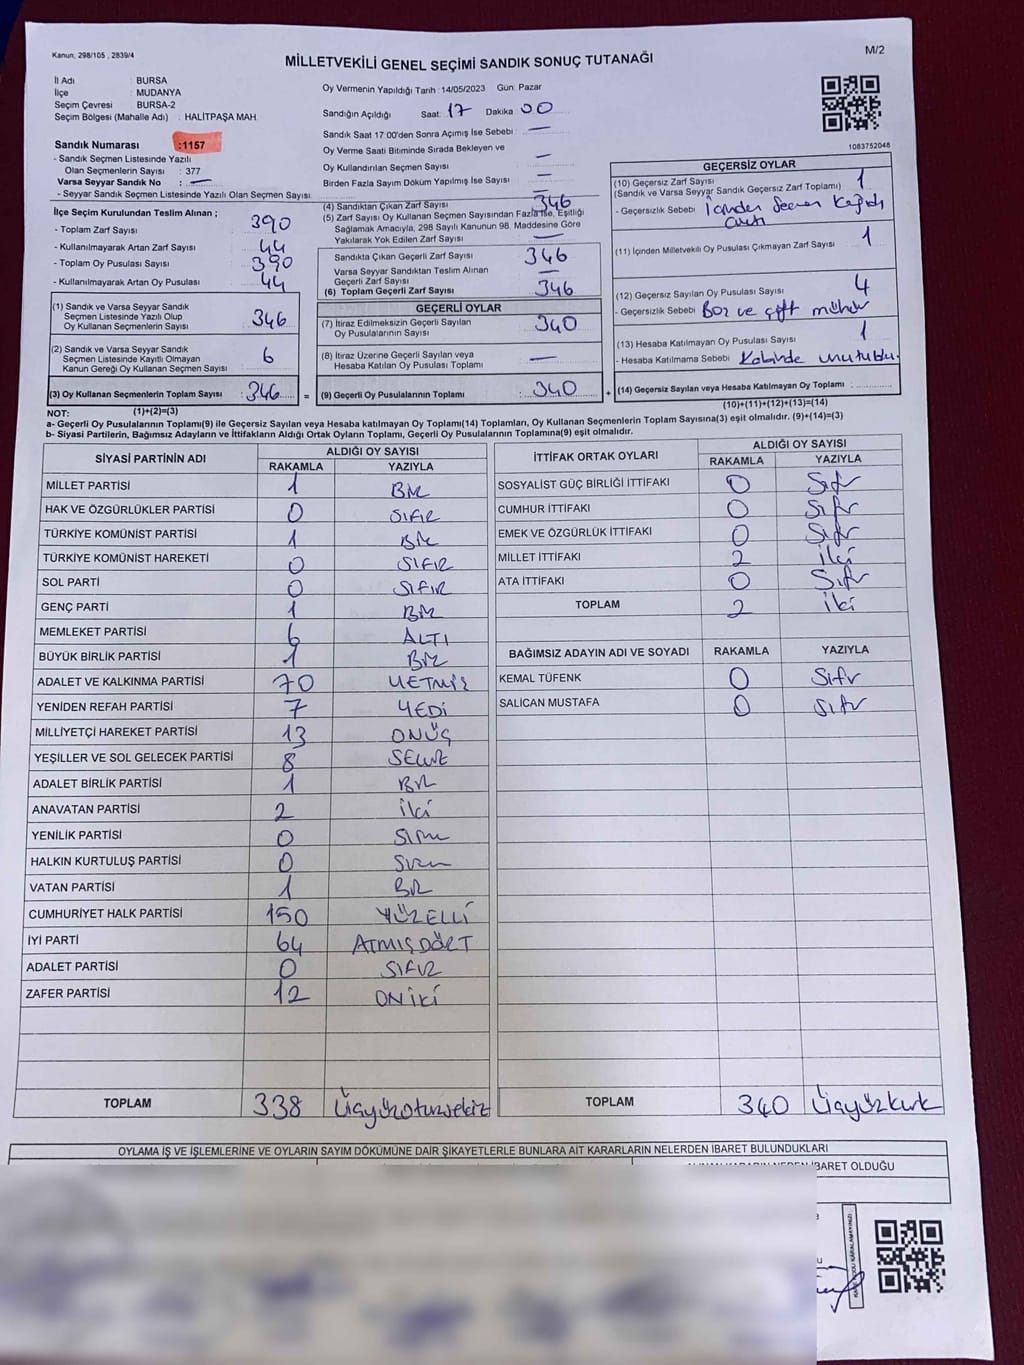 Kanun, 298/105 , 2839/4
M/2
MİLLETVEKİLİ GENEL SEÇİMİ SANDIK SONUÇ TUTANAĞI
İl Adı : BURSA
İlçe : MUDANYA
Seçim Çevresi : BURSA-2
Seçim Bölgesi (Mahalle Adı) : HALİTPAŞA MAH
Sandık Numarası :1157
- Sandık Seçmen Listesinde Yazılı
Olan Seçmenlerin Sayısı : 377
Varsa Seyyar Sandık No : —
- Seyyar Sandık Seçmen Listesinde Yazılı Olan Seçmen Sayısı
Oy Vermenin Yapıldığı Tarih : 14/05/2023 Gün: Pazar
Sandığın Açıldığı Saat: 17 Dakika 00
Sandık Saat 17:00'den Sonra Açımış İse Sebebi : —
Oy Verme Saati Bitiminde Sırada Bekleyen ve
Oy Kullandırılan Seçmen Sayısı —
Birden Fazla Sayım Döküm Yapılmış İse Sayısı —
1083752048
İlçe Seçim Kurulundan Teslim Alınan ;
- Toplam Zarf Sayısı 390
- Kullanılmayarak Artan Zarf Sayısı 44
- Toplam Oy Pusulası Sayısı 390
- Kullanılmayarak Artan Oy Pusulası 44
(1) Sandık ve Varsa Seyyar Sandık
Seçmen Listesinde Yazılı Olup
Oy Kullanan Seçmenlerin Sayısı 346
(2) Sandık ve Varsa Seyyar Sandık
Seçmen Listesinde Kayıtlı Olmayan
Kanun Gereği Oy Kullanan Seçmen Sayısı 6
(3) Oy Kullanan Seçmenlerin Toplam Sayısı : 346 =
(1)+(2)=(3)
(4) Sandıktan Çıkan Zarf Sayısı 346
(5) Zarf Sayısı Oy Kullanan Seçmen Sayısından Fazla İse, Eşitliği
Sağlamak Amacıyla, 298 Sayılı Kanunun 98. Maddesine Göre
Yakılarak Yok Edilen Zarf Sayısı —
Sandıkta Çıkan Geçerli Zarf Sayısı 346
Varsa Seyyar Sandıktan Teslim Alınan
Geçerli Zarf Sayısı —
(6) Toplam Geçerli Zarf Sayısı 346
GEÇERLİ OYLAR
(7) İtiraz Edilmeksizin Geçerli Sayılan
Oy Pusulalarının Sayısı 340
(8) İtiraz Üzerine Geçerli Sayılan veya
Hesaba Katılan Oy Pusulası Toplamı —
(9) Geçerli Oy Pusulalarının Toplamı : 340 +
GEÇERSİZ OYLAR
(10) Geçersiz Zarf Sayısı 1
(Sandık ve Varsa Seyyar Sandık Geçersiz Zarf Toplamı)
- Geçersizlik Sebebi : İçinden Secmen Kağıdı
Cıktı
(11) İçinden Milletvekili Oy Pusulası Çıkmayan Zarf Sayısı 1
(12) Geçersiz Sayılan Oy Pusulası Sayısı 4
- Geçersizlik Sebebi Boz ve çift mühür
(13) Hesaba Katılmayan Oy Pusulası Sayısı 1
- Hesaba Katılmama Sebebi Kabinde unutuldu.
(14) Geçersiz Sayılan veya Hesaba Katılmayan Oy Toplamı :
(10)+(11)+(12)+(13)=(14)
NOT:
a- Geçerli Oy Pusulalarının Toplamı(9) ile Geçersiz Sayılan veya Hesaba katılmayan Oy Toplamı(14) Toplamları, Oy Kullanan Seçmenlerin Toplam Sayısına(3) eşit olmalıdır. (9)+(14)=(3)
b- Siyasi Partilerin, Bağımsız Adayların ve İttifakların Aldığı Ortak Oyların Toplamı, Geçerli Oy Pusulalarının Toplamına(9) eşit olmalıdır.
SİYASİ PARTİNİN ADI ALDIĞI OY SAYISI
RAKAMLA YAZIYLA
MİLLET PARTİSİ 1 BİR
HAK VE ÖZGÜRLÜKLER PARTİSİ 0 SIFIR
TÜRKİYE KOMÜNİST PARTİSİ 1 BİR
TÜRKİYE KOMÜNİST HAREKETİ 0 SIFIR
SOL PARTİ 0 SIFIR
GENÇ PARTİ 1 BİR
MEMLEKET PARTİSİ 6 ALTI
BÜYÜK BİRLİK PARTİSİ 1 BİR
ADALET VE KALKINMA PARTİSİ 70 YETMİŞ
YENİDEN REFAH PARTİSİ 7 YEDİ
MİLLİYETÇİ HAREKET PARTİSİ 13 ONÜÇ
YEŞİLLER VE SOL GELECEK PARTİSİ 8 SEKİZ
ADALET BİRLİK PARTİSİ 1 BİR
ANAVATAN PARTİSİ 2 İki
YENİLİK PARTİSİ 0 SIFIR
HALKIN KURTULUŞ PARTİSİ 0 SIFIR
VATAN PARTİSİ 1 BİR
CUMHURİYET HALK PARTİSİ 150 YÜZELLİ
İYİ PARTİ 64 ATMIŞDÖRT
ADALET PARTİSİ 0 SIFIR
ZAFER PARTİSİ 12 ONİKİ
TOPLAM 338 Üçyüzotuzsekiz
İTTİFAK ORTAK OYLARI ALDIĞI OY SAYISI
RAKAMLA YAZIYLA
SOSYALİST GÜÇ BİRLİĞİ İTTİFAKI 0 Sıfır
CUMHUR İTTİFAKI 0 Sıfır
EMEK VE ÖZGÜRLÜK İTTİFAKI 0 Sıfır
MİLLET İTTİFAKI 2 iki
ATA İTTİFAKI 0 Sıfır
TOPLAM 2 iki
BAĞIMSIZ ADAYIN ADI VE SOYADI RAKAMLA YAZIYLA
KEMAL TÜFENK 0 Sıfır
SALİCAN MUSTAFA 0 Sıfır
TOPLAM 340 Üçyüzkırk
OYLAMA İŞ VE İŞLEMLERİNE VE OYLARIN SAYIM DÖKÜMÜNE DAİR ŞİKAYETLERLE BUNLARA AİT KARARLARIN NELERDEN İBARET BULUNDUKLARI
İBARET OLDUĞU